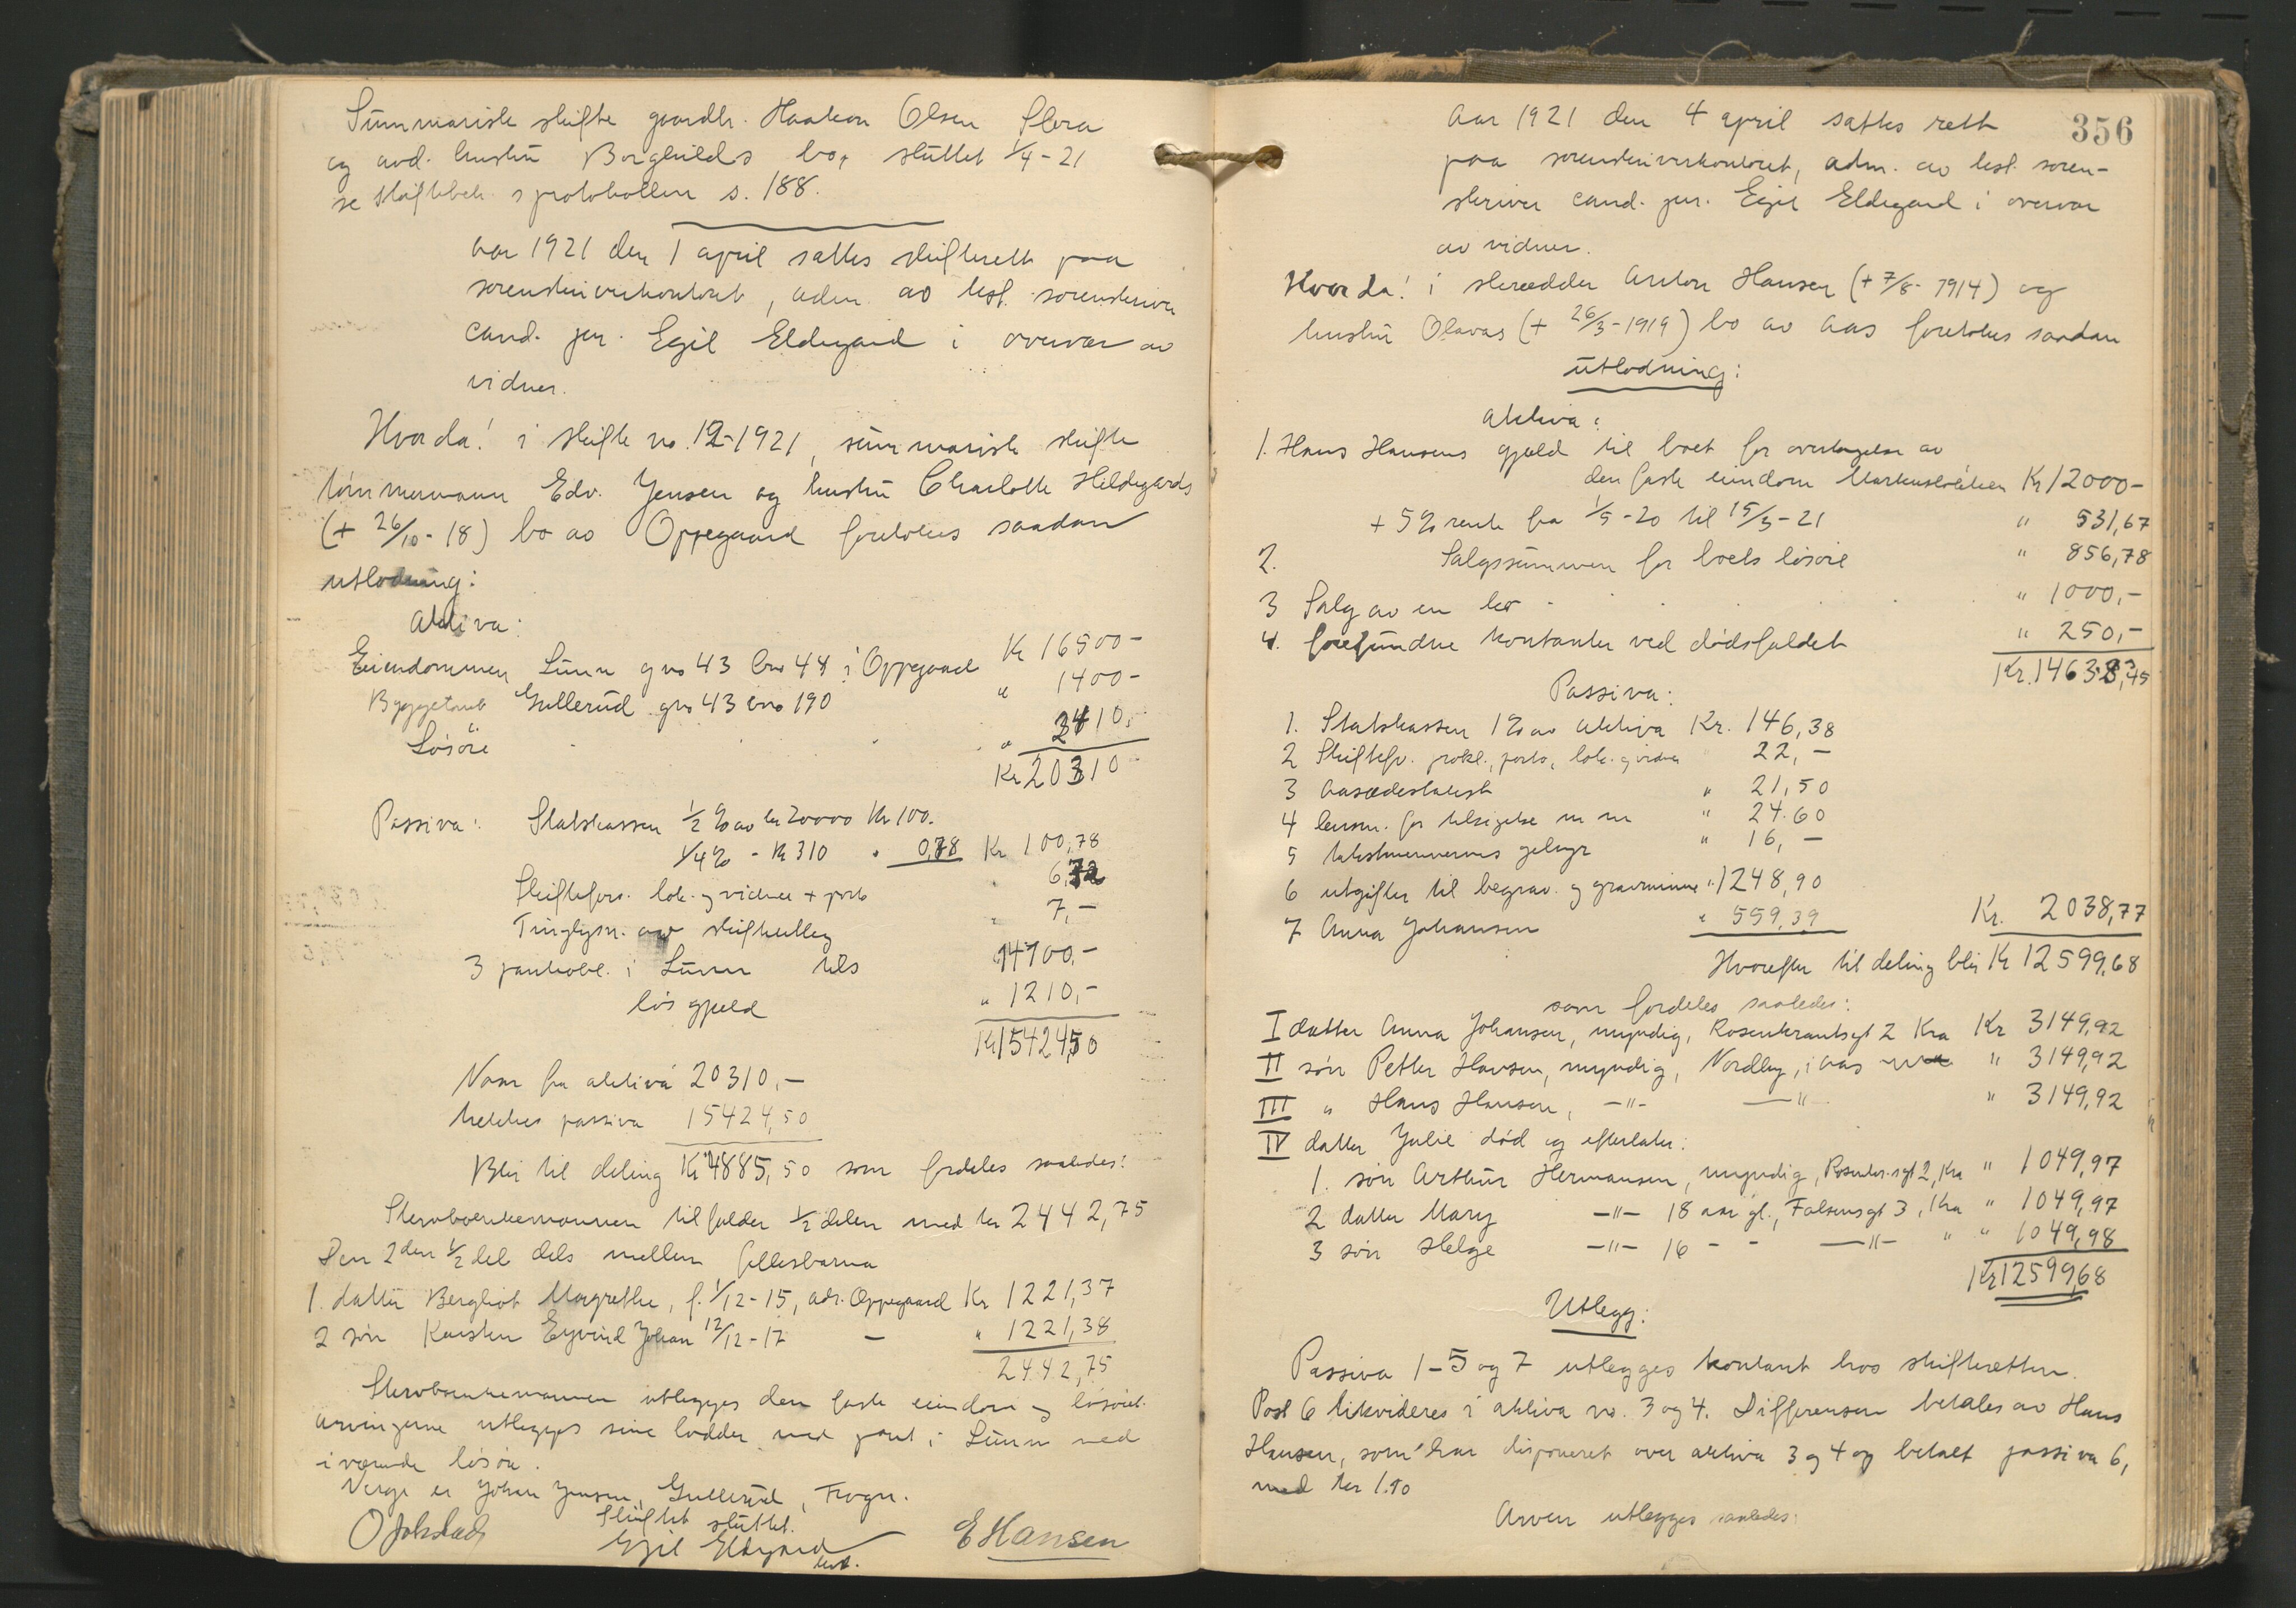 Summarisk skifte gaardbr. Haakon Olsen Flora
og avd. hustru Borghilds bo, sluttet 1/4-21
se skiftebeh. sprotokollen s. 188.
Aar 1921 den 1 april sattes skifterett paa
sorenskriverkontoret, adm. av best. sorenskriver
cand. jur. Egil Eldegard i overvær av
vidner.
Hvorda! i skifte no. 12-1921, summarisk skifte
tømmermann Edv. Jensen og hustru Charlotte Hildegards
(+ 26/10-18) bo av Oppegaard foretokes saadan
utlodning:
Aktiva:
Eiendommen Lunn gno 43 bno 48 i Oppegaard Kr 16500-
Byggetomt Gullerud gno 43 bno 190 " 1400-
Løsøre " 2410,-
Kr 20310-
Passiva: Statskassen 1/2 % av kr 20000 Kr 100.
1/4 % - Kr 310 " 0,78 Kr 100,78
Skiftefors. lok. og vidner + porto 6,72
Tinglysn. av skifteutleg " 7,-
3 pantobl. i Lunn tils 14100,-
løs gjeld " 1210,-
Kr 15424,50
Naar fra aktiva 20310,-
trekkes passiva 15424,50
Blir til deling Kr 4885,50 som fordeles saaledes:
Stervboenkemannen tilfalder 1/2 delen med kr 2442,75
Den 2den 1/2 del dels mellem fellesbarna
1. datter Bergliot Margrethe, f. 1/12-15, adr. Oppegaard Kr 1221,37
2 søn Karsten Eyvind Johan 12/12-17 — " 1221,38
2442,75
Stervboenkemannen utlegges den faste eiendom og løsøret.
arvingerne utlegges sine lodder med pant i Lunn med
iværende løsøre.
Verge er Johan Jensen, Gullerud, Frogn.
Skiftet sluttet.
O Jokstad Egil Eldegard E Hansen
best.
356
Aar 1921 den 4 april sattes rett
paa sorenskriverkontoret, adm. av best. soren-
skriver cand. jur. Egil Eldegard i overvær
av vidner.
Hvorda! i skrædder Anton Hansen (+ 7/8-1914) og
hustru Olavas (+ 26/3-1919) bo av Aas foretokes saadan
utlodning:
Aktiva:
1. Hans Hansens gjeld til boet for overtagelse av
den faste eiendom Markusløkken Kr 12000-
+ 5% rente fra 1/5-20 til 15/3-21 " 531,67
2. Salgssummen for boets løsøre " 856,78
3 Salg av en ko " 1000,-
4. forefundne kontanter ved dødsfaldet " 250,-
Kr. 14638,45
Passiva:
1. Statskassen 1% av aktiva Kr. 146,38
2 Skiftefor. prokl., porto, lok. og vidner " 22,-
3 Aasædestakst " 21,50
4 lensm. for tilsigelse m m " 24.60
5 takstmennenes gebyr " 16,-
6 utgifter til begrav. og gravminne " 1248,90
7 Anna Johansen " 559,39 Kr. 2038,77
Hvorefter til deling blir Kr 12599,68
som fordeles saaledes:
I datter Anna Johansen, myndig, Rosenkrantsgt 2 Kra Kr 3149,92
II søn Petter Hansen, myndig, Nordby, i Aas " 3149,92
III " Hans Hansen, —"— —"— " 3149,92
IV datter Julie død og efterlater:
1. søn Arthur Hermansen, myndig, Rosenkr.sgt 2, Kra " 1049,97
2 datter Mary —"— 18 aar gl., Falsensgt 3, Kra " 1049,97
3 søn Helge —"— 16 - - —"— " " 1049,98
Kr 12599,68
Utlegg:
Passiva 1-5 og 7 utlegges kontant hos skifteretten.
Post 6 likvideres i aktiva no. 3 og 4. Differensen betales av Hans
Hansen, som har disponeret over aktiva 3 og 4 og betalt passiva 6,
med kr 1.10
Arven utlegges saaledes: